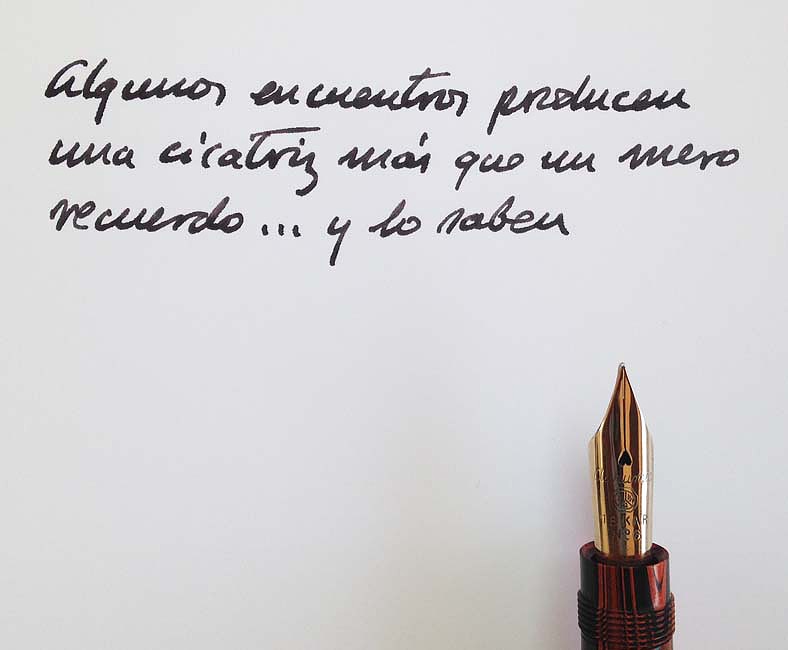 Algunos encuentros producen
una cicatriz más que un mero
recuerdo... y lo saben